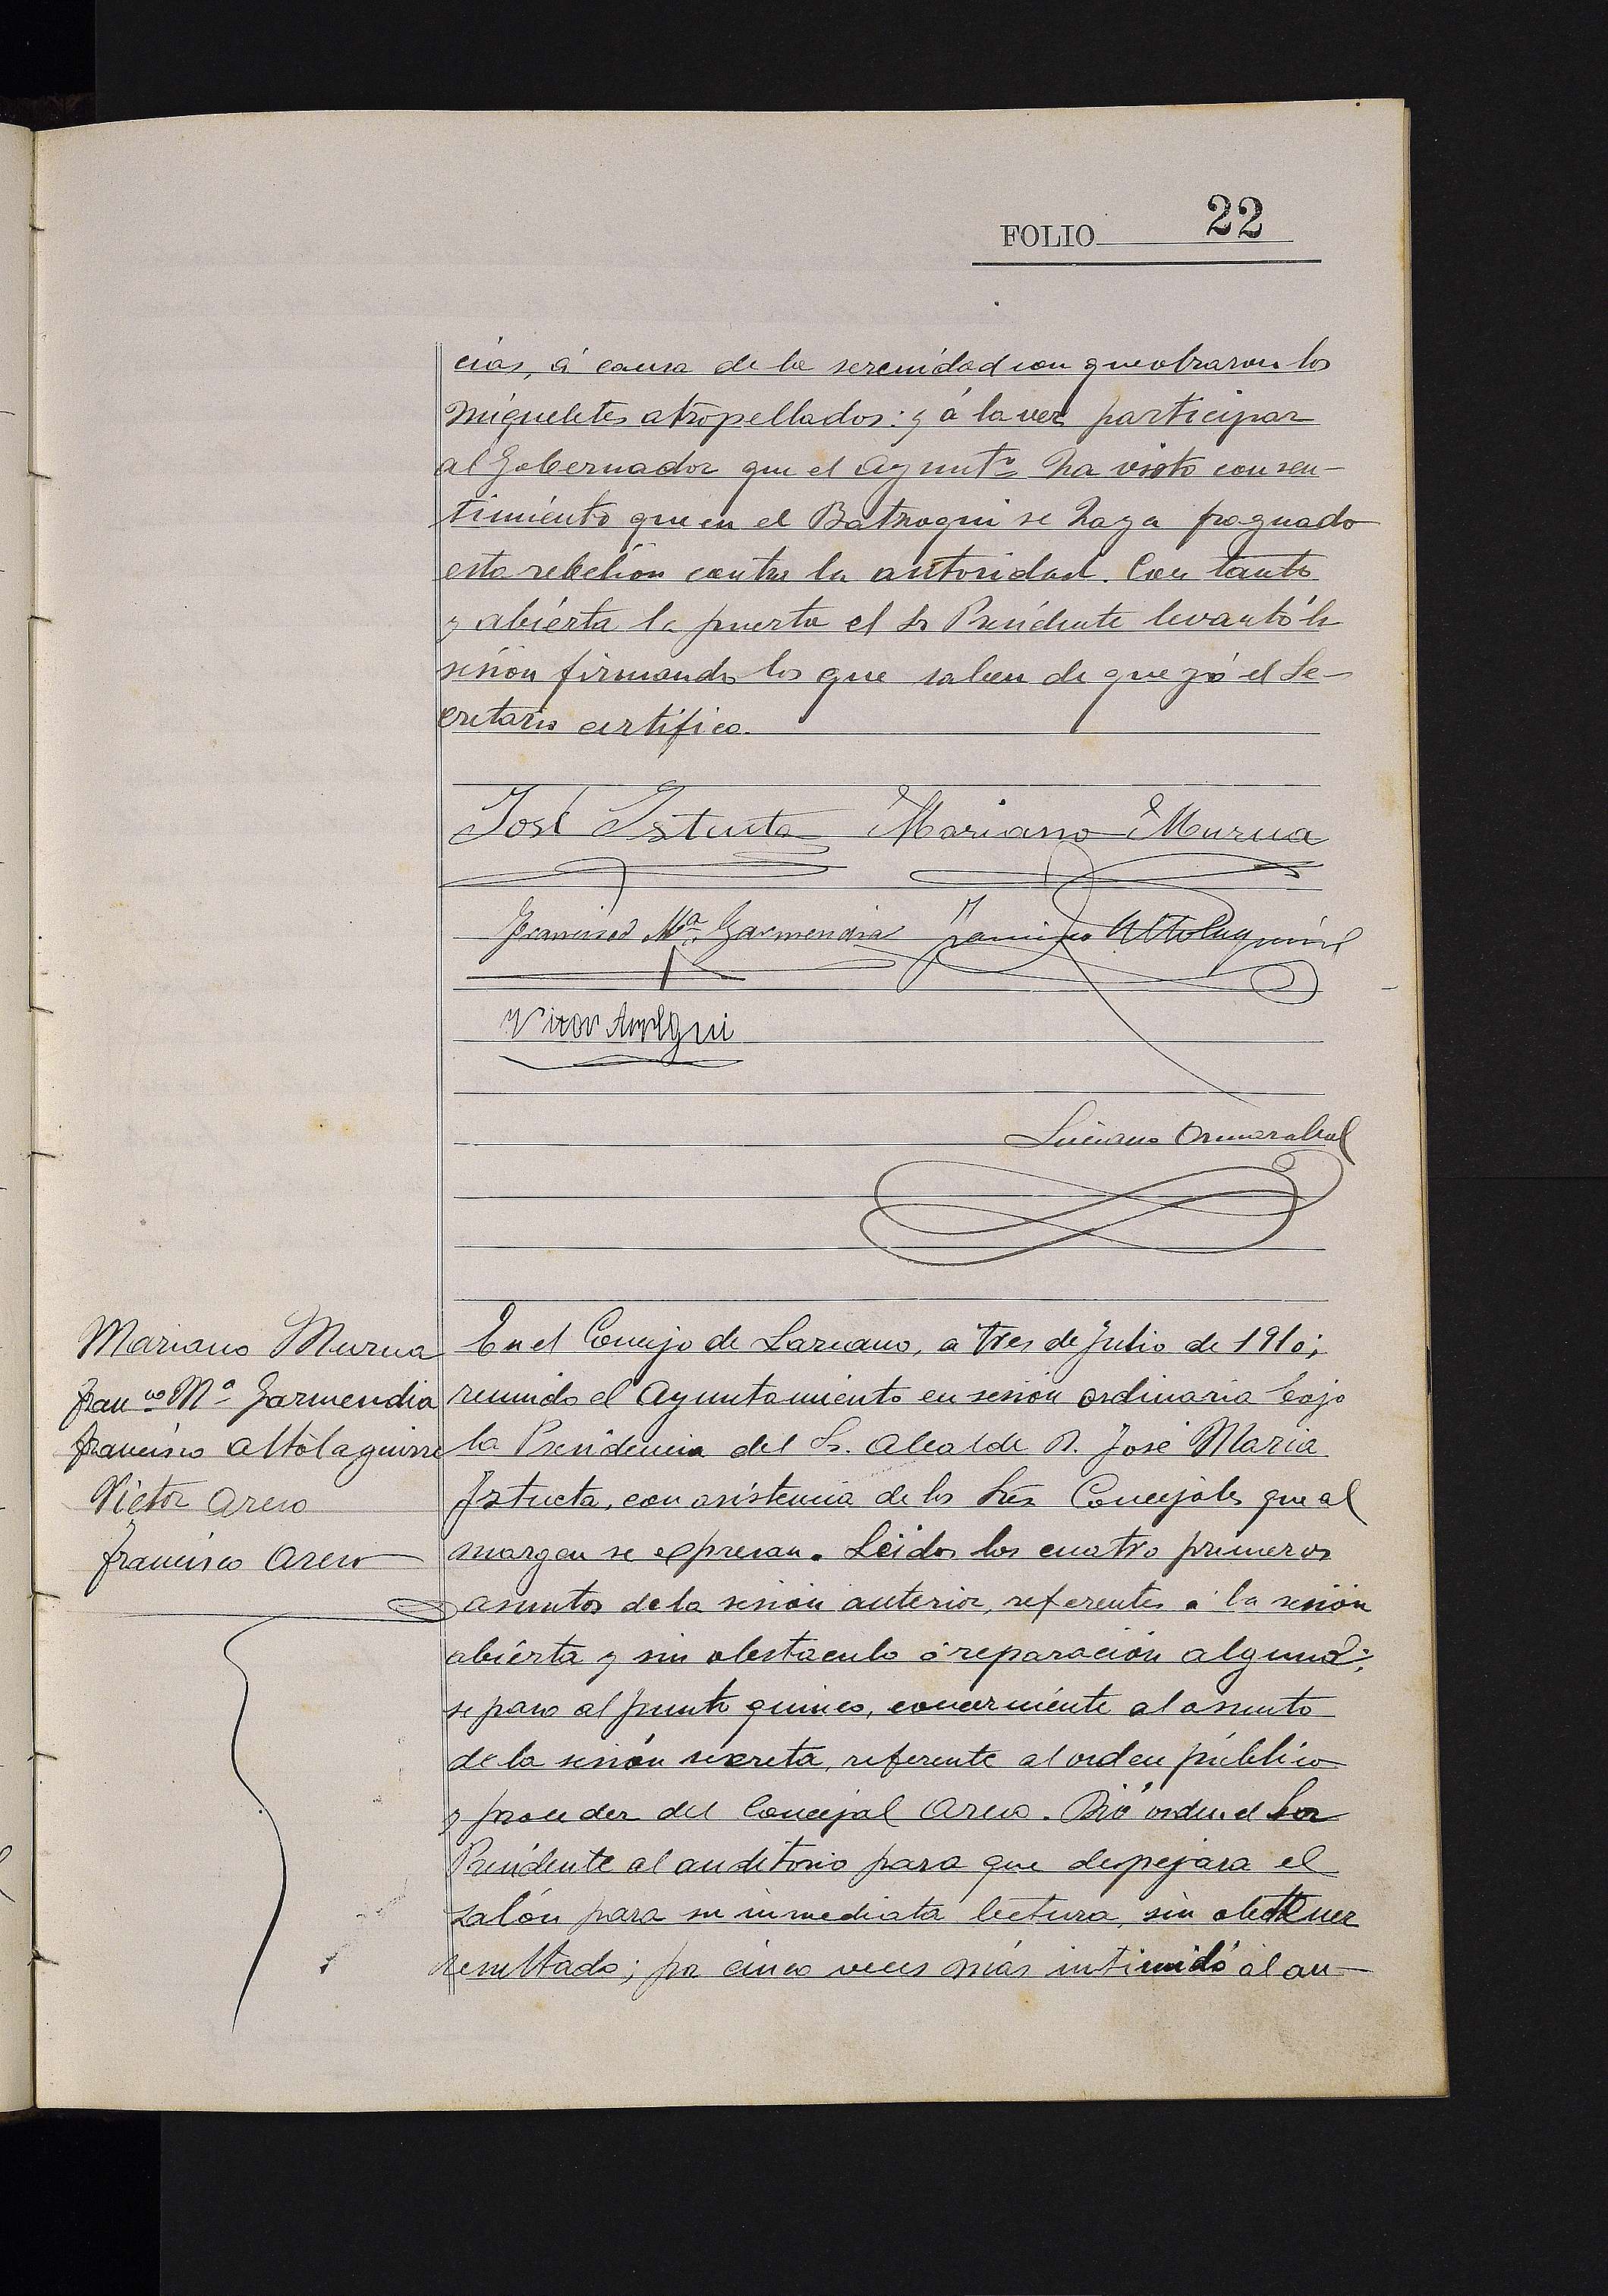 FOLIO 22
cias, á causa de la serenidad con que obraron los
Miqueletes atropellados: y á la vez participar
al Gobernador que el Ayuntº ha visto con sen-
timiento que en el Batzoqui se haya fraguado
esta rebelión contra la autoridad. Con tanto
y abierta la puerta el Sr Presidente levantó la
sesión firmando los que saben de que yó el Se-
cretario certifico.
José Istueta Mariano Murua
Francisco Mª Garmendia Francisco Altolaguirre
Luciano Ormazabal
Mariano Murua
Franco Mª Garmendia
Francisco Altolaguirre
Victor Arco
Francisco Arco
En el Concejo de Lazcano, a tres de Julio de 1910;
reunido el Ayuntamiento en sesión ordinaria bajo
la Presidencia del Sr. Alcalde D. José Maria
Istueta, con asistencia de los Srés Concejales que al
margen se expresan. Leidos los cuatro primeros
asuntos de la sesión anterior, referentes á la sesión
abierta y sin obstaculo ó reparación alguna;
se paso al punto quinco, concerniente al asunto
de la sesión secreta, referente al orden público
y proceder del Concejal Arco. Dió orden el Sor
Presidente al auditorio para que despejara el
salón para su inmediata lectura, sin obtener
resultado; por cinco veces más intimidó al au-